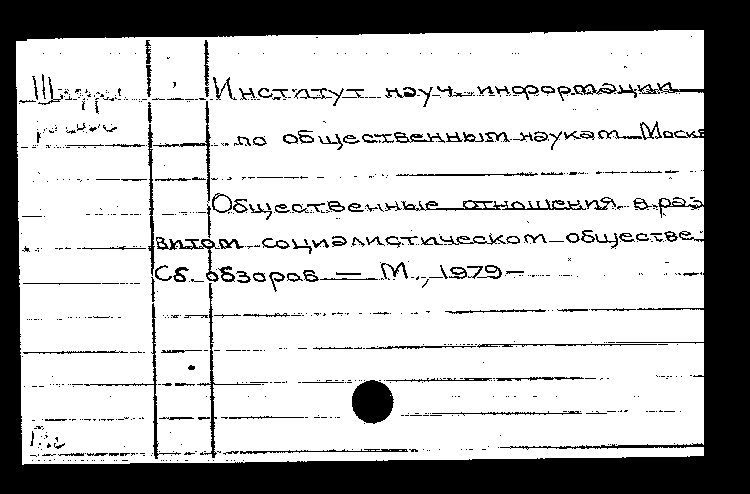 Шифры Институт науч. информации
разные по общественным наукам. Москв
Общественные отношения в раз
витом социалистическом обществе:
Сб. обзоров — М., 1979–